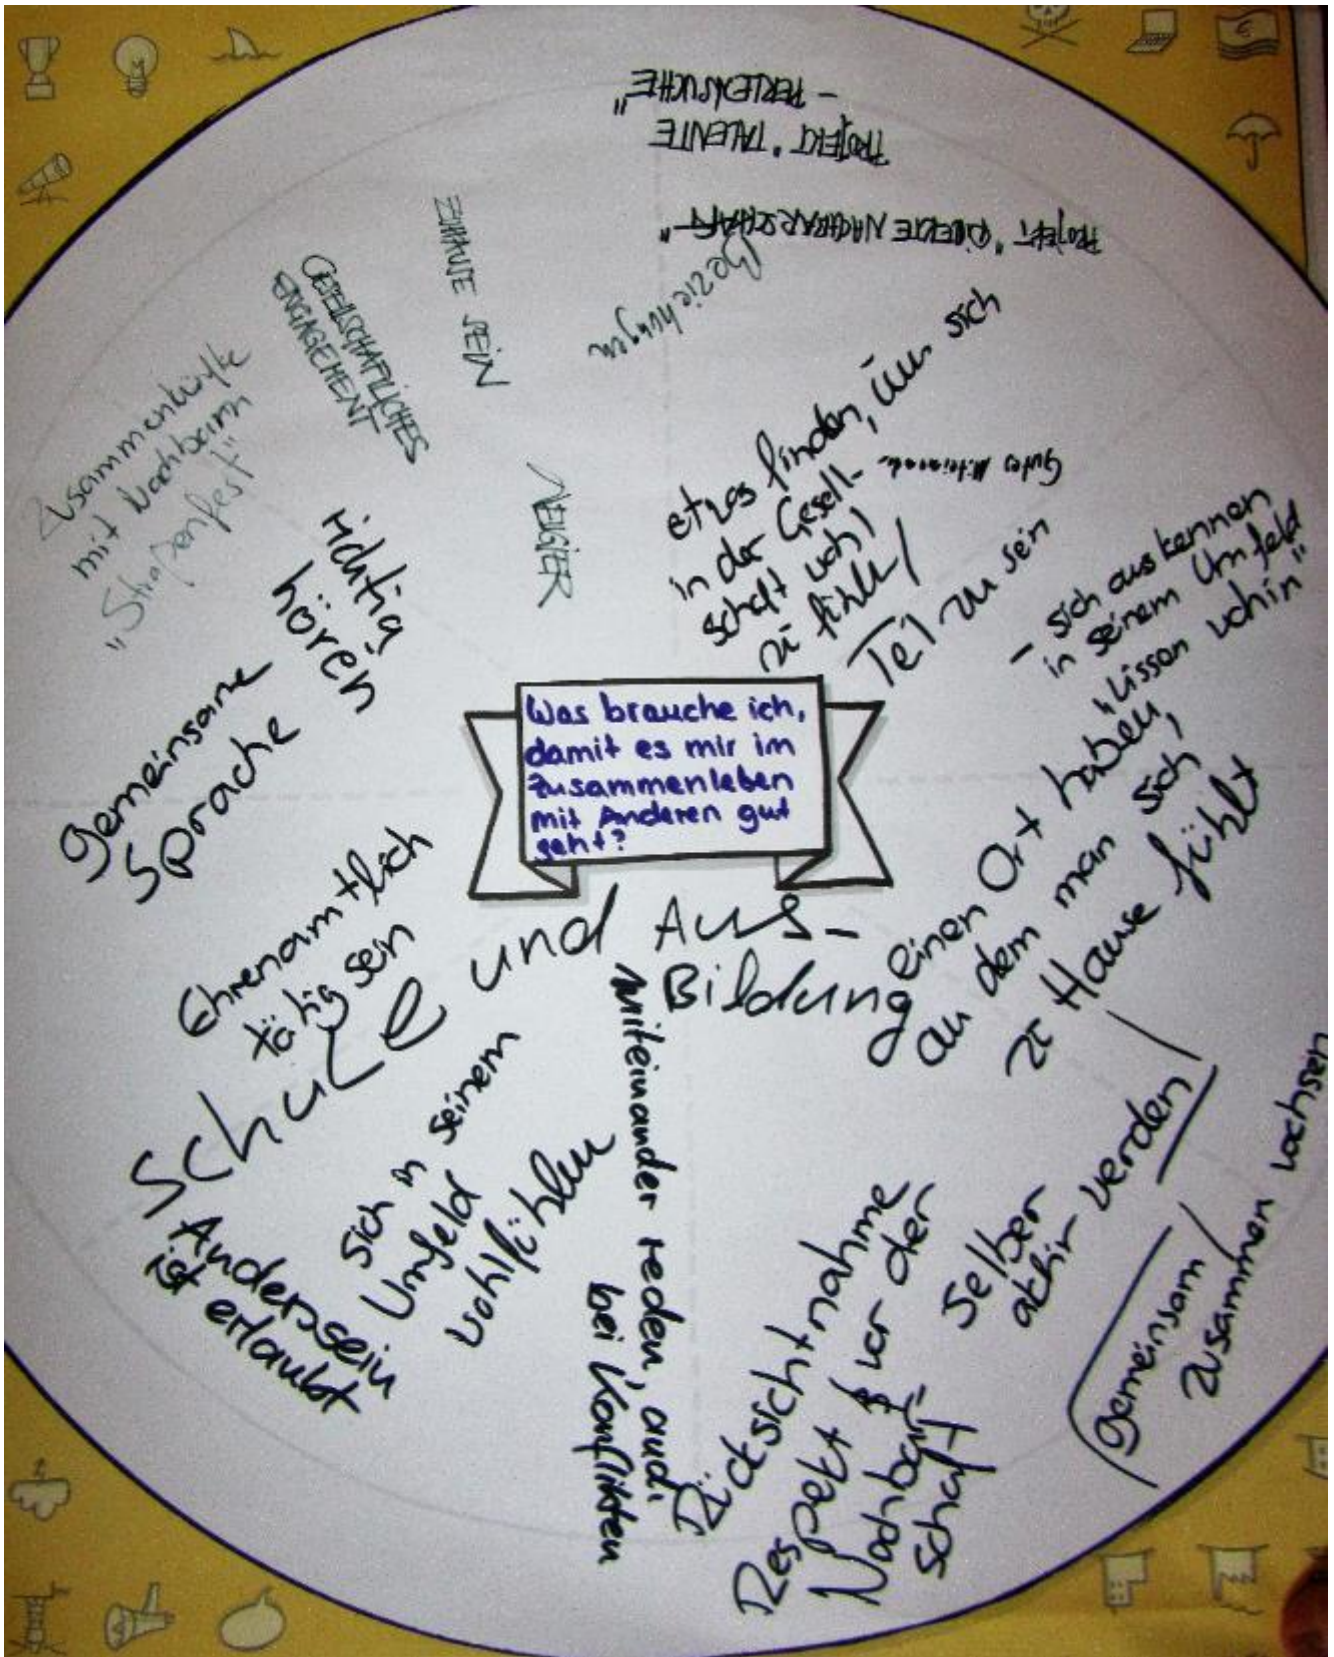 Was brauche ich,
damit es mir im
Zusammenleben
mit Anderen gut
geht?
PROJEKT "TALENTE
- PERLENSUCHE"
PROJEKT "DIVERSE NACHBARSCHAFT"
Beziehungen
ZUHAUSE SEIN
GESELLSCHAFTLICHES
ENGAGEMENT
Zusammenkünfte
mit Nachbarn
„Straßenfest"
NEUGIER
richtig
hören
gemeinsame
Sprache
etwas finden, um sich
in der Gesell-
schaft wohl
zu fühlen
Gutes Miteinander
Teil zu sein
- sich auskennen
in seinem Umfeld
„wissen wohin"
einen Ort haben,
an dem man sich
zu Hause fühlt
Ehrenamtlich
tätig sein
Schule und Aus-
Bildung
sich in seinem
Umfeld
wohlfühlen
Anderssein
ist erlaubt
miteinander reden, auch
bei Konflikten
Rücksichtnahme
Respekt vor der
Nachbar-
schaft
Selber
aktiv werden
gemeinsam
zusammen wachsen